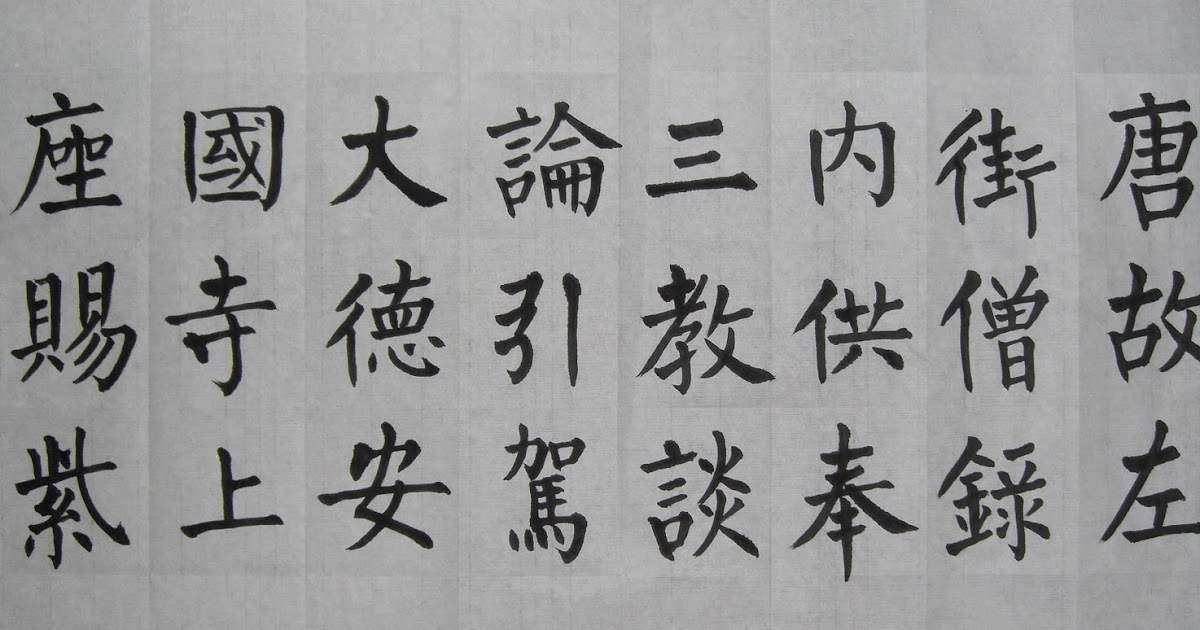 唐故左
街僧錄
内供奉
三教談
論引駕
大德安
國寺上
座賜紫